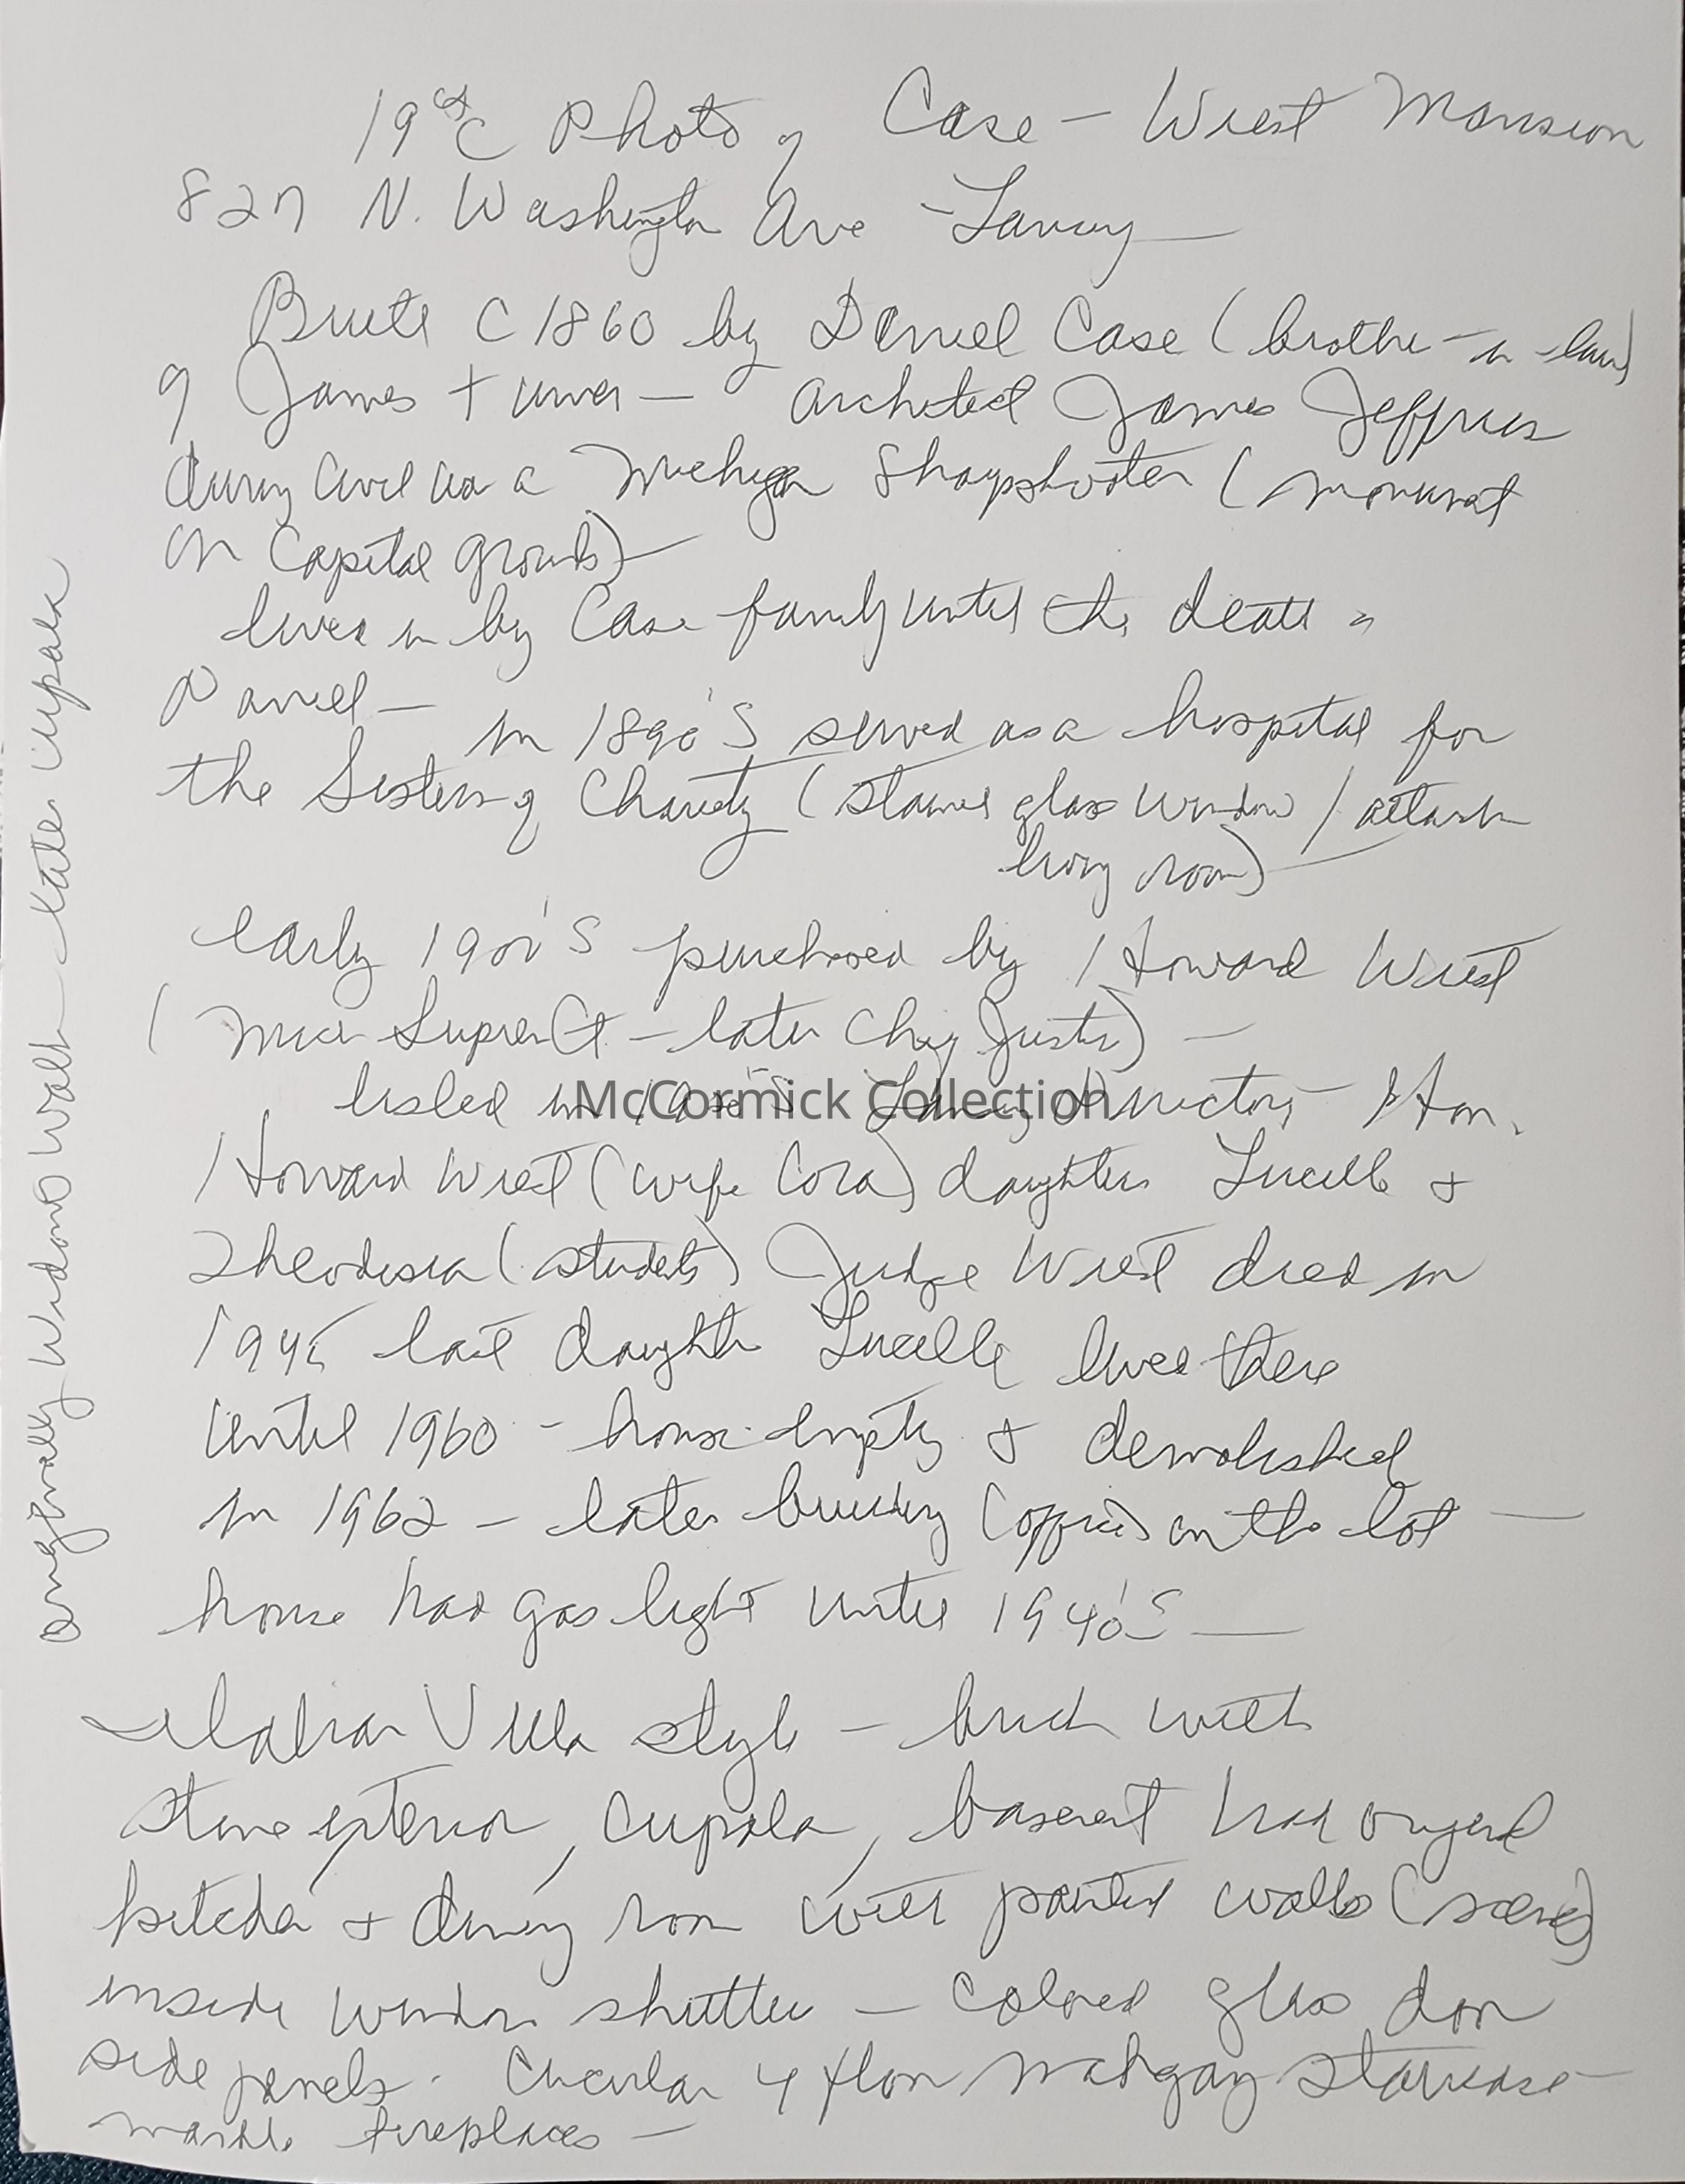 19th C Photo of Case - Wiest Mansion
827 N. Washington Ave - Lansing
Built C 1860 by Daniel Case (brother-in-law)
of James Turner - architect James Jeffries
during Civil War a Michigan Sharpshooter (monument
on Capital grounds)
lived in by Case family until the death of
Daniel - in 1890's served as a hospital for
the Sisters of Charity (stained glass window /
living room)
early 1900's purchased by Howard Wiest
(Mich Supreme Ct - later Chief Justice) -
listed in Lansing Directory Hon.
Howard Wiest (wife Cora) daughters Lucelle &
Theodosia (students) Judge Wiest died in
1945 last daughter Lucelle lived there
until 1960 - house empty & demolished
in 1962 - later building (offices) on the lot -
house had gas light until 1940's -
Italian Villa style - brick with
stone exterior, cupola, basement had original
kitchen & dining room with painted walls (scenes)
inside window shutters - colored glass door
side panels. Circular 4 floor mahogany staircase -
marble fireplaces -
originally Widows Walk - later cupola
McCormick Collection